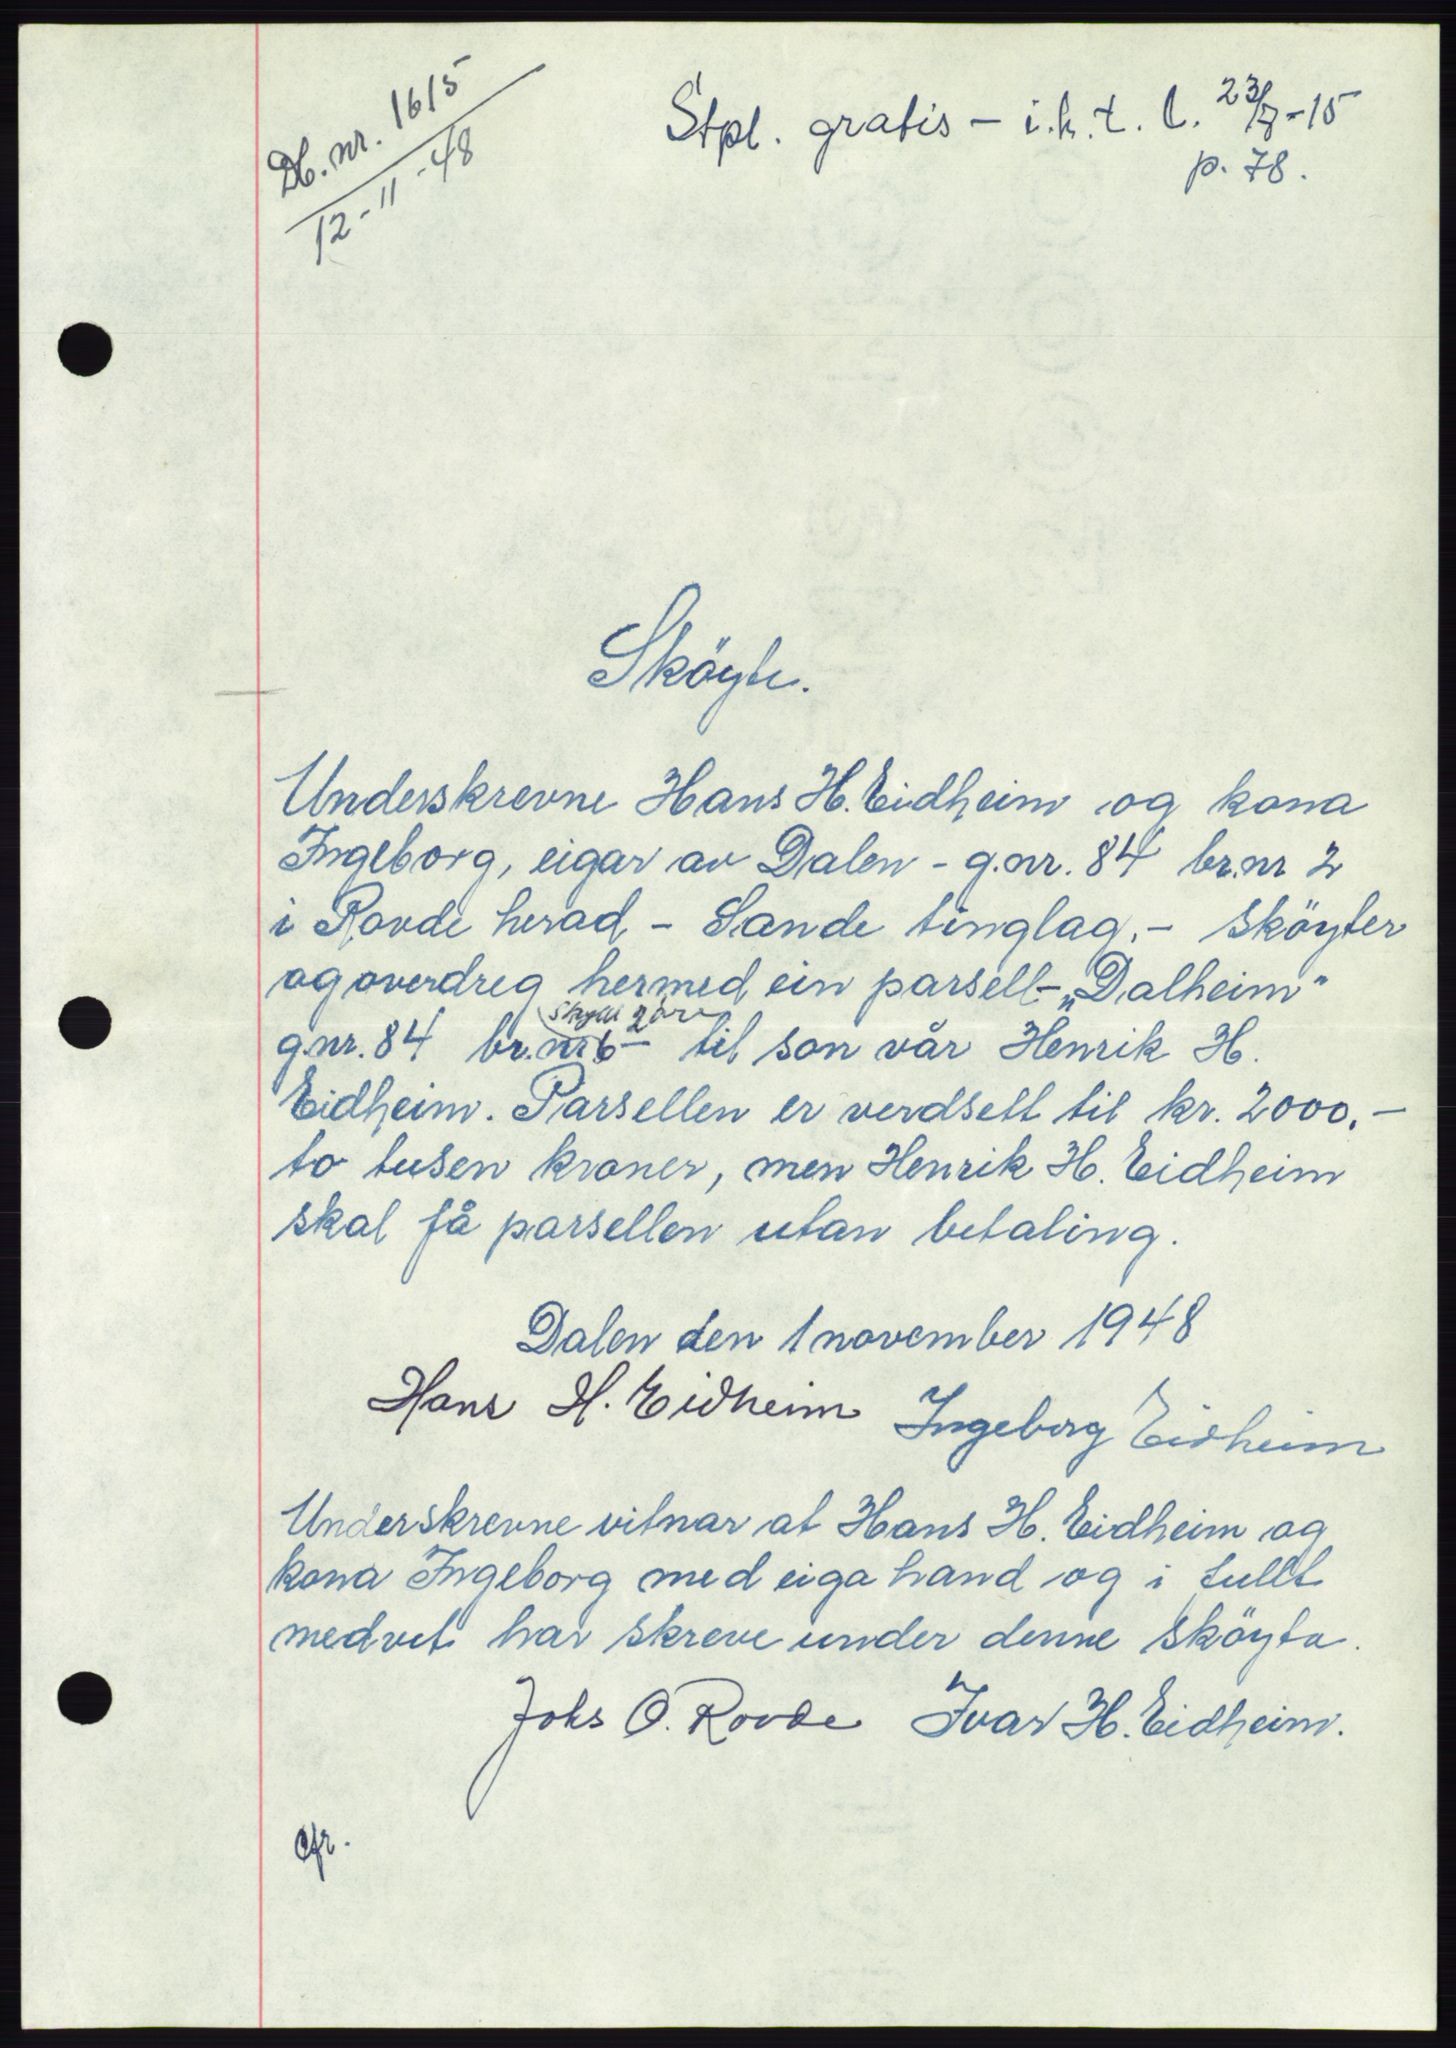 Db. nr. 1615
12-11-48
Stpl. gratis - i.h.t. l. 23/7-15
p. 78.
Sköyte.
Underskrevne Hans H. Eidheim og kona
Ingeborg, eigar av Dalen - g.nr. 84 br.nr 2
i Rovde herad - Sande tinglag, - sköyter
og overdreg hermed ein parsell - „Dalheim"
skyld 2 öre
g.nr. 84 br.nr 6 - til son vår Henrik H.
Eidheim. Parsellen er verdsett til kr. 2000,-
to tusen kroner, men Henrik H. Eidheim
skal få parsellen utan betaling.
Dalen den 1 november 1948
Hans H. Eidheim Ingeborg Eidheim
Underskrevne vitnar at Hans H. Eidheim og
kona Ingeborg med eiga hand og i fullt
medvet har skreve under denne sköyta.
Johs O. Rovde Ivar H. Eidheim.